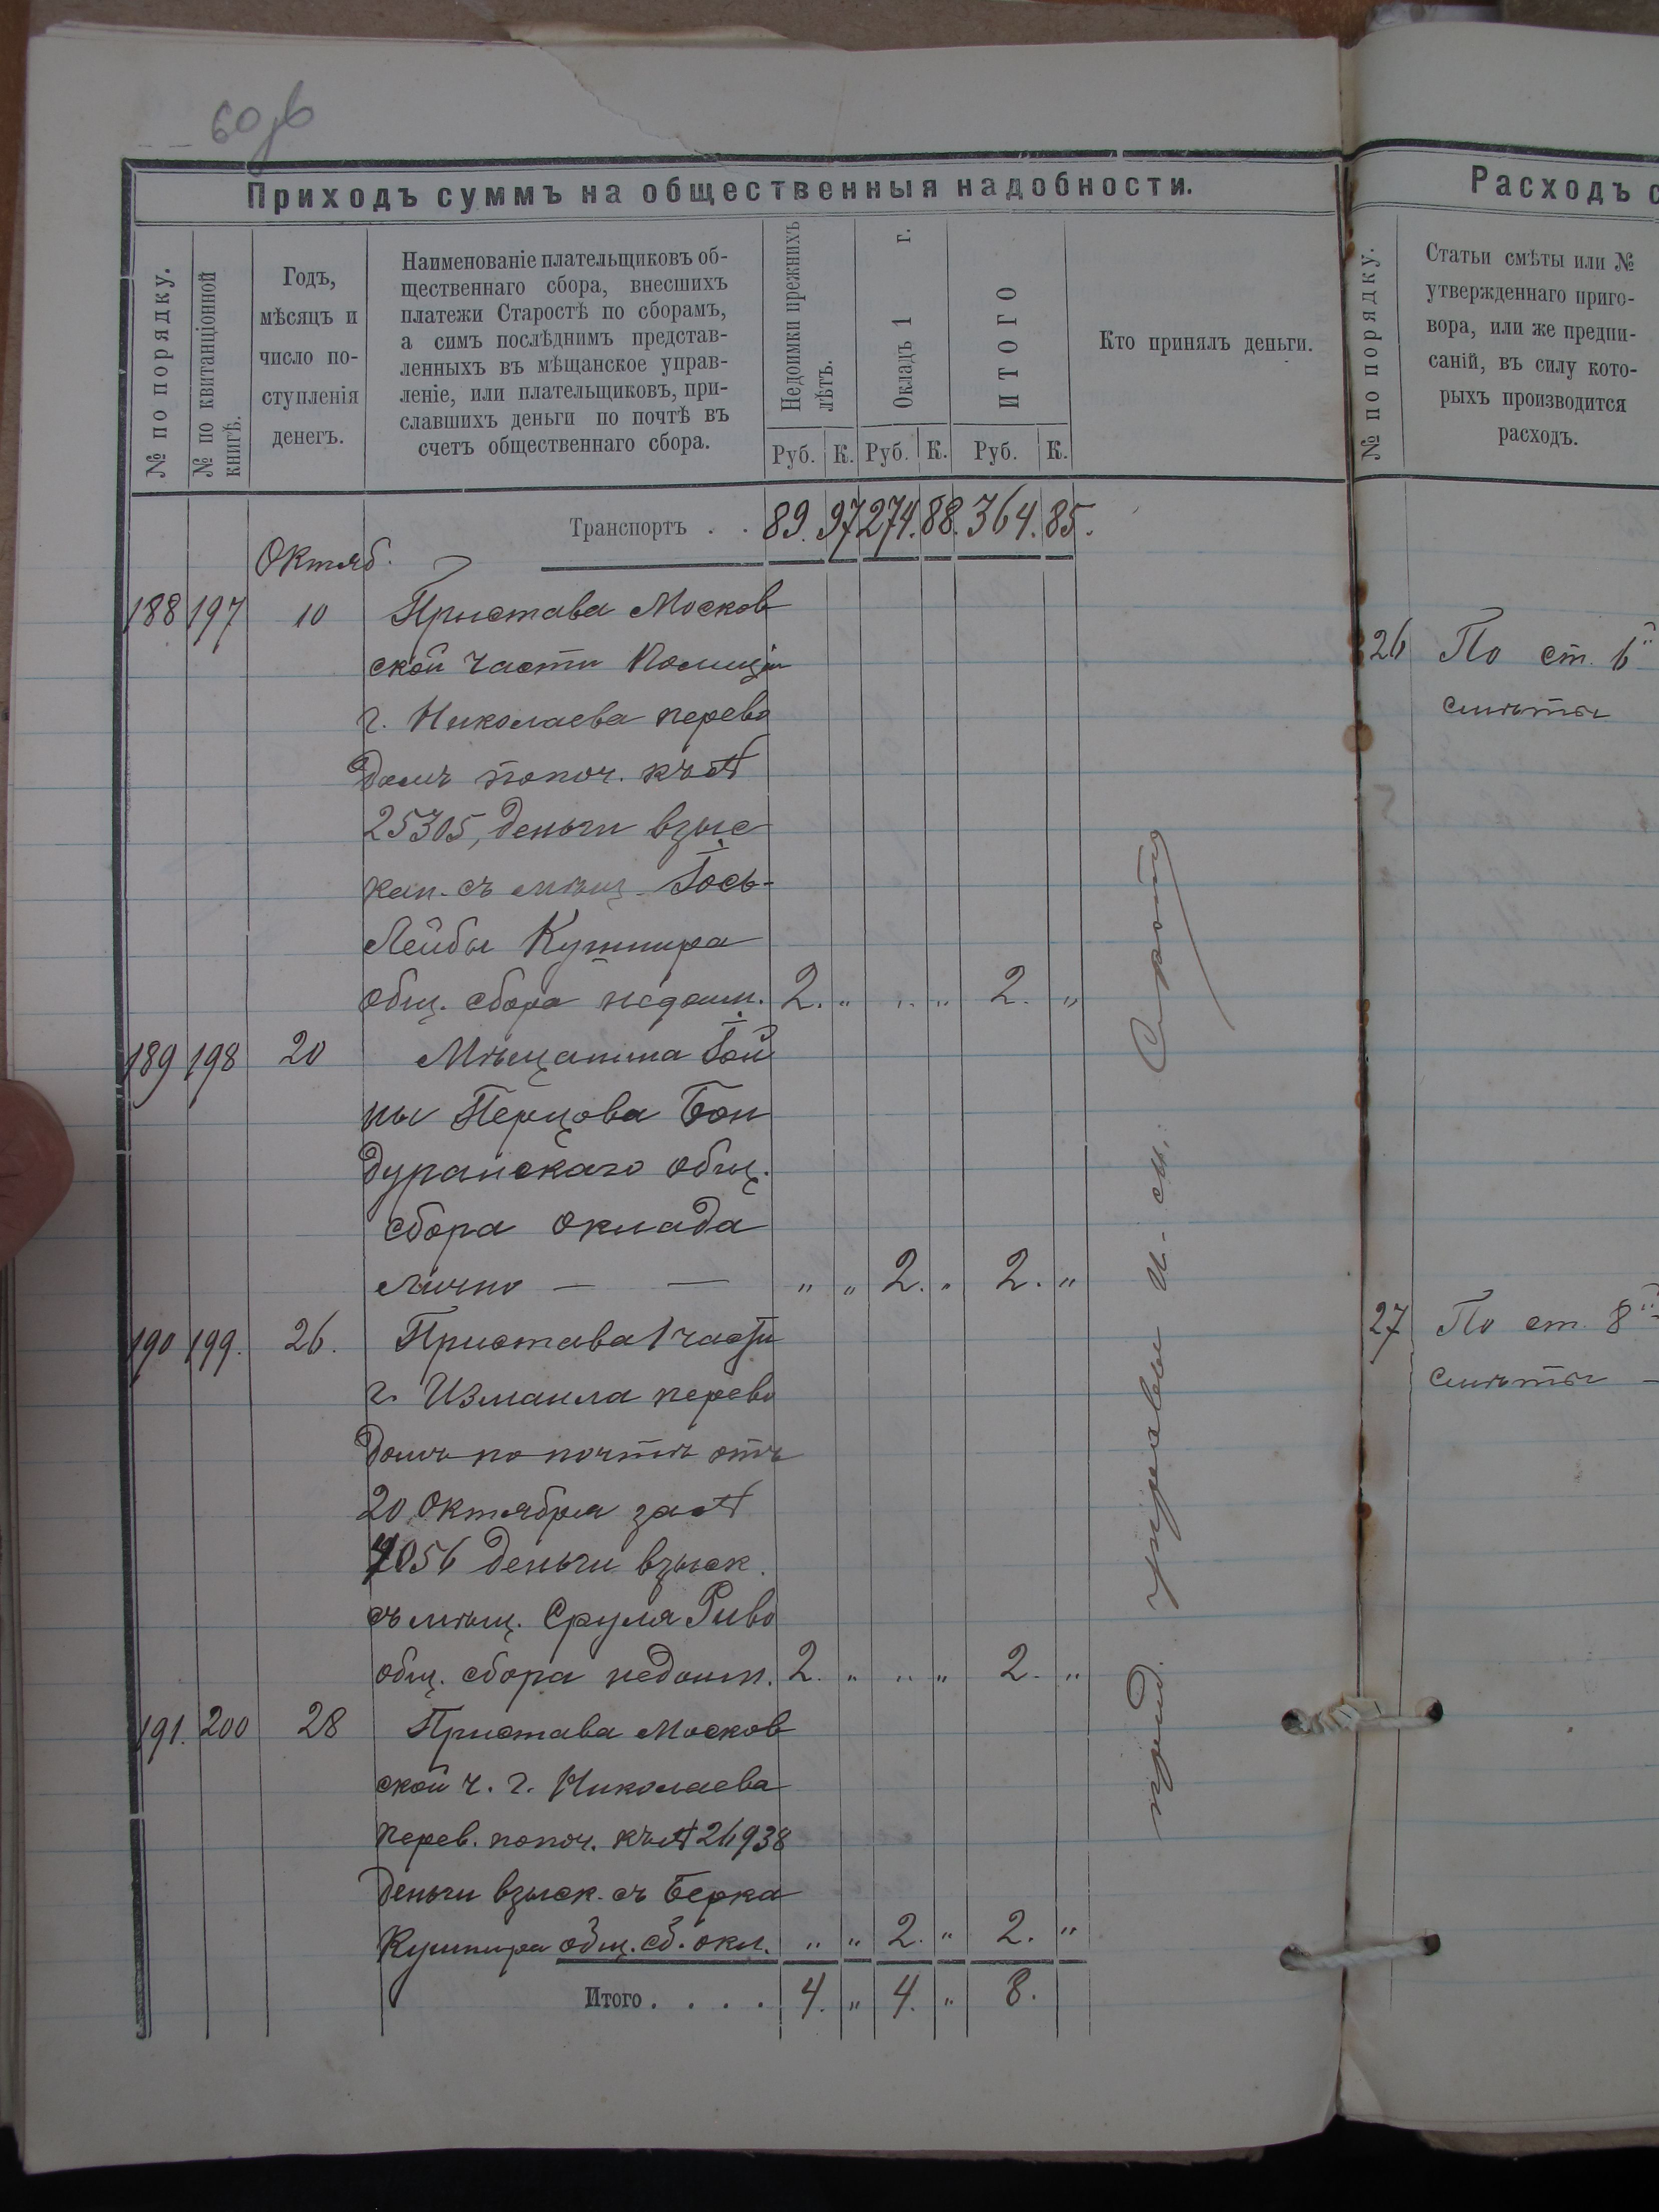 60 об
Приходъ суммъ на общественныя надобности.
№ по порядку.
№ по квитанціонной
книгѣ.
Годъ,
мѣсяцъ и
число по-
ступленія
денегъ.
Наименованіе плательщиковъ об-
щественнаго сбора, внесшихъ
платежи Старостѣ по сборамъ,
а симъ послѣднимъ представ-
ленныхъ въ мѣщанское управ-
леніе, или плательщиковъ, при-
славшихъ деньги по почтѣ въ
счетъ общественнаго сбора.
Недоимки прежнихъ
лѣтъ.
Окладъ 1 г.
ИТОГО
Руб. К. Руб. К. Руб. К.
Кто принялъ деньги.
Транспортъ . . 89. 97 274. 88. 364. 85.
Октяб.
188 197 10 Пристава Москов
ской части Полиціи
г. Николаева перево
домъ попоч. къ №
25305, деньги взыс
кан. съ мѣщ. Іось-
Лейбы Кушнира
общ. сбора недоим. 2. „ „ „ 2. „
189 198 20 Мѣщанина Іой
ны Перцова Бон
дурайскаго общ.
сбора оклада
лично — — „ „ 2. „ 2. „
190 199. 26. Пристава 1 части
г. Измаила перево
домъ по почтѣ отъ
20 Октября за №
7056 деньги взыск.
съ мѣщ. Сруля Риво
общ. сбора недоим. 2. „ „ „ 2. „
191. 200 28 Пристава Москов
ской ч. г. Николаева
перев. попоч. къ № 26938
деньги взыск. съ Берка
Кушнира общ. сб. окл. „ „ 2. „ 2. „
Итого . . . . 4. „ 4. „ 8.
управы
Расходъ с
№ по порядку.
Статьи смѣты или №
утвержденнаго приго-
вора, или же предпи-
саній, въ силу кото-
рыхъ производится
расходъ.
26 По ст. 6й
смѣты
27 По ст. 8й
смѣты —